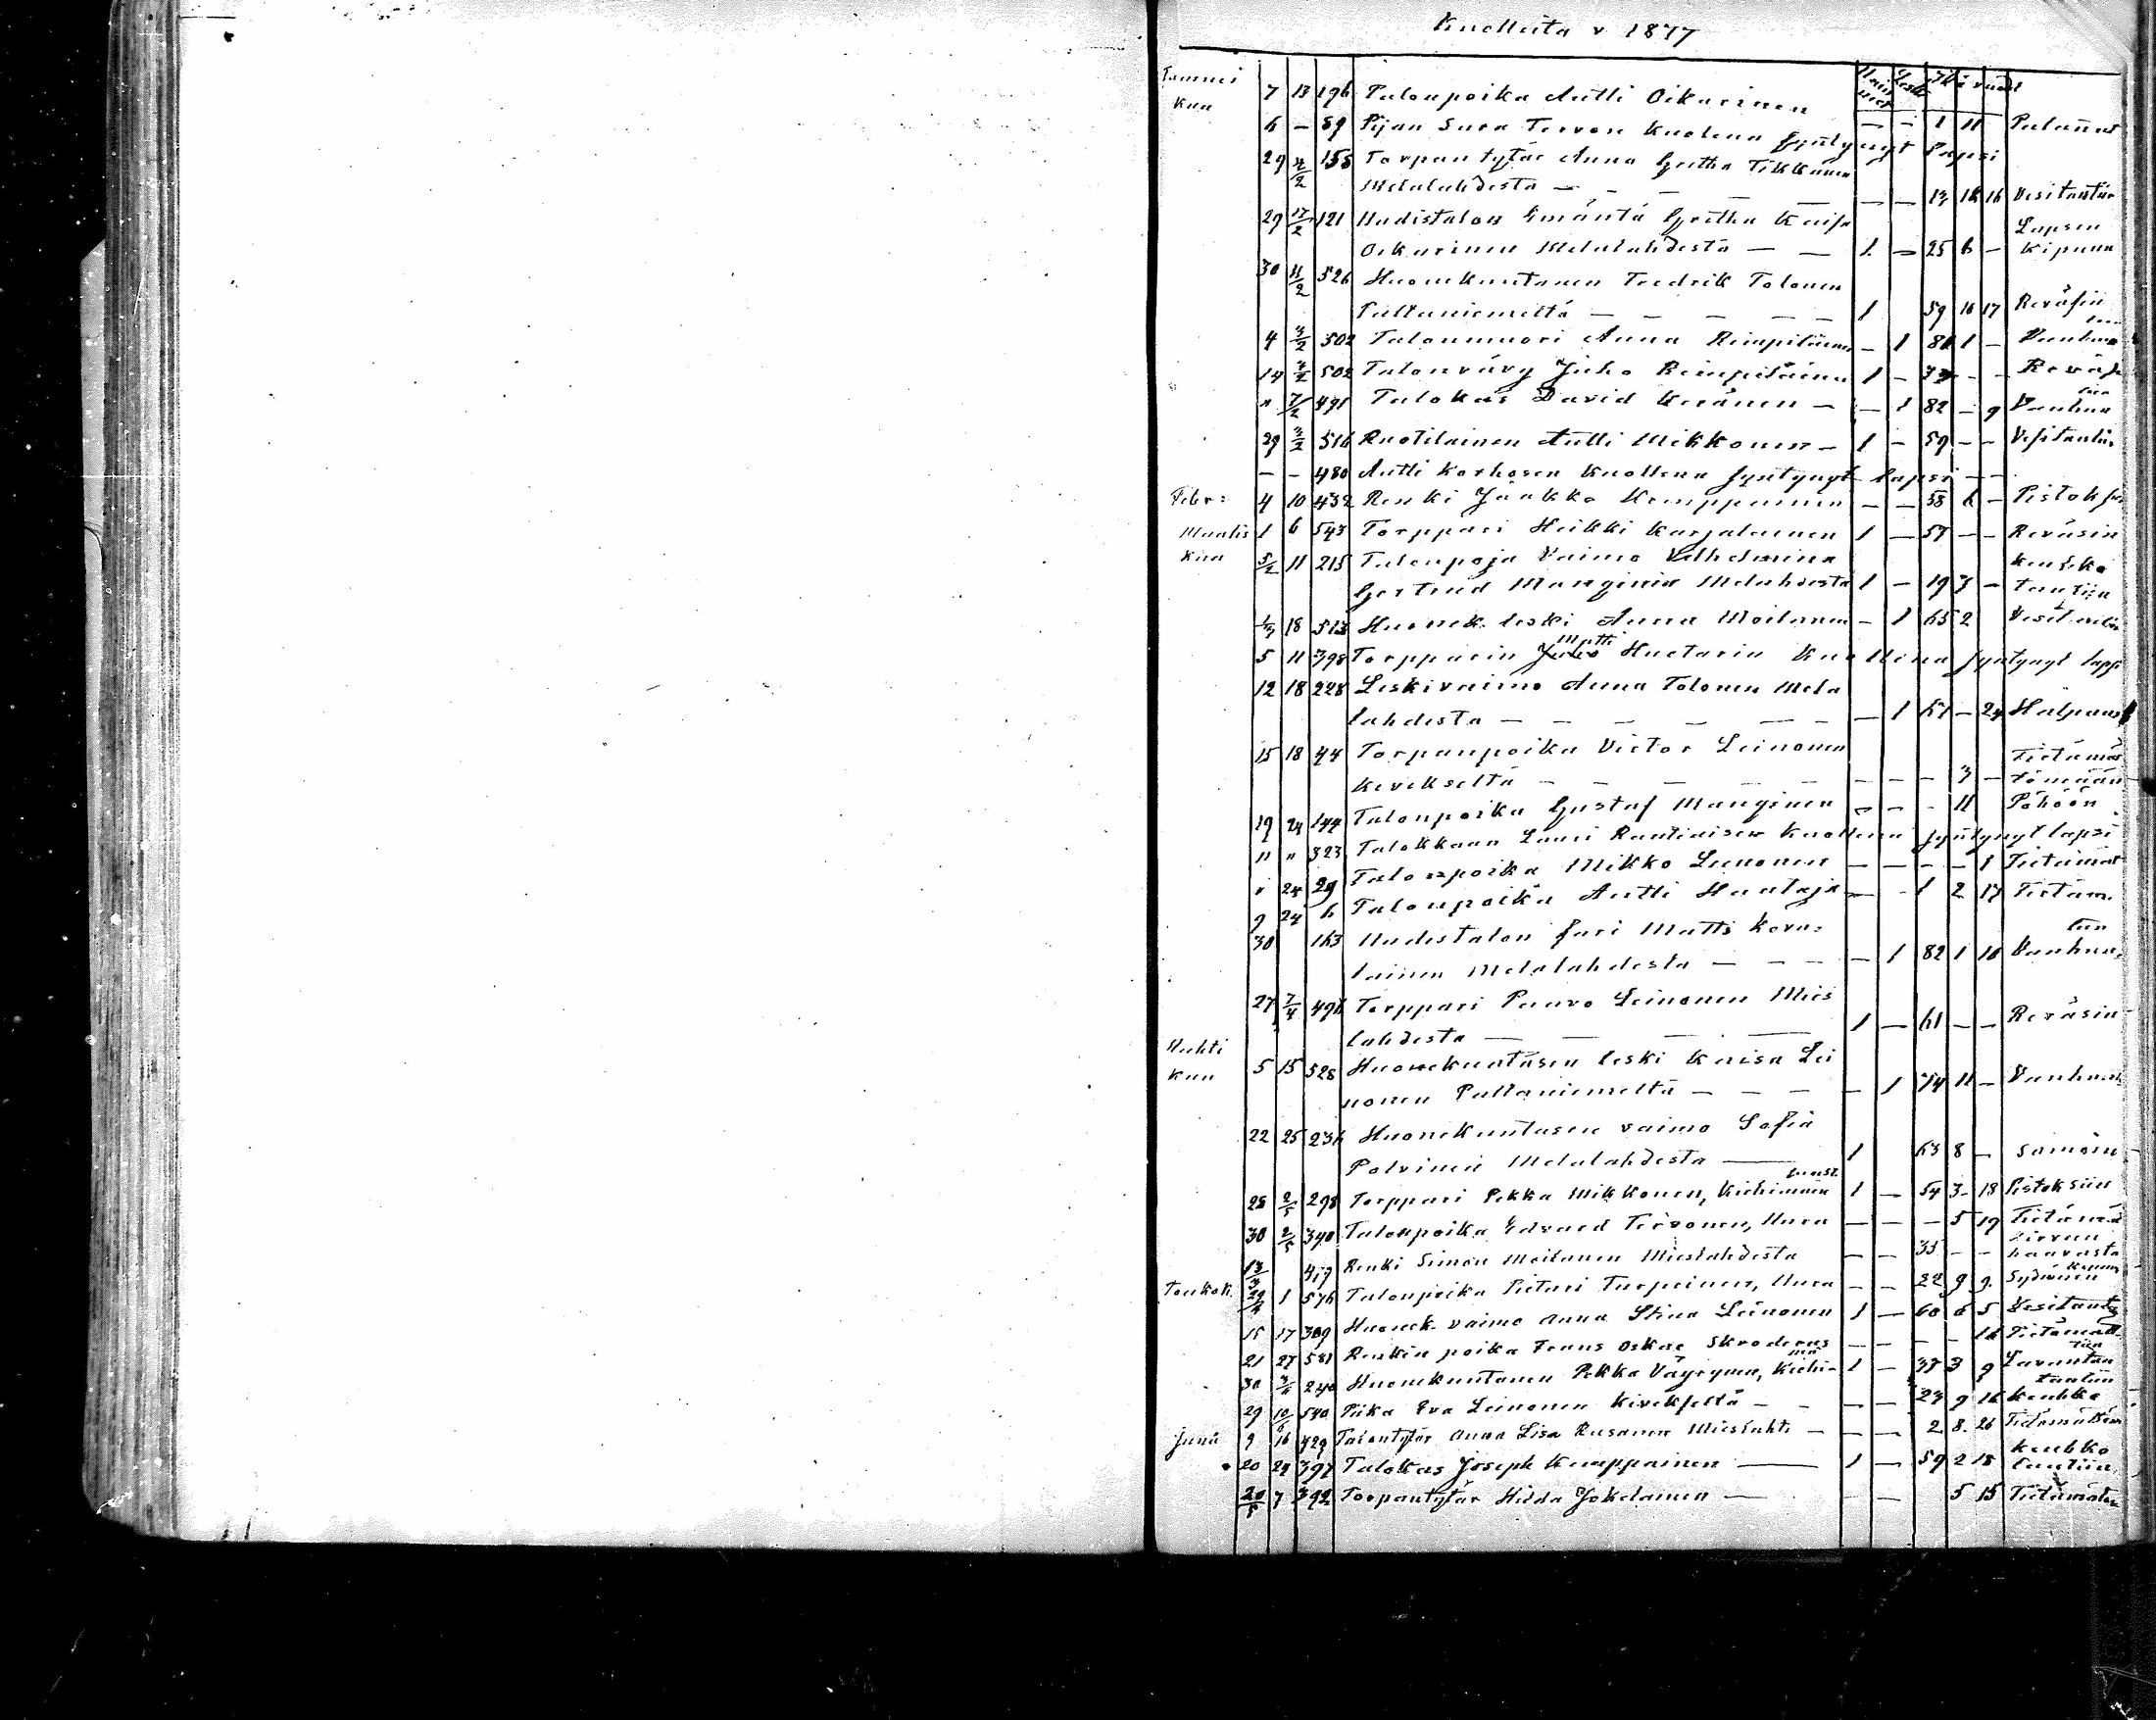 Kuolleita v 1877
Nai net Leski Ikä vuod
Tammi kuu 7 13 196 Talonpoika Antti Oikarinen — — 1 11 Palanut
6 — 59 Pijan Sara Tervon kuolena syntynyt Lapsi
29 4/2 155 Torpan tytär Anna Gretha Tikkanen
Melalahdesta — — — — — — 16 Vesitautiin
29 17/2 121 Uudistalon Emäntä Gretha Kaisa Lapsen
Oikarinen Melalahdesta — — 1 — 25 6 — kipuun
30 11/2 526 Huonekuntanen Fredrik Tolonen
Paltaniemeltä — — — — — 1 59 10 17 Reväsin
4 3/2 502 Talonmuori Anna Rimpiläinen — 1 81 1 — Vanhuu
14 3/2 502 Talonvävy Juho Rimpiläinen 1 — — — Reväsi
" 7/2 491 Talokas David Keränen — — 1 82 — 9 Vanhuu
29 3/2 516 Ruotilainen Antti Mikkonen — 1 — 59 — — Vesitautiin
— — 480 Antti Karhosen kuollena syntynyt lapsi — —
Febr: 4 10 432 Renki Jaakko Kemppainen — — 58 6 — Pistoksen
Maalis kuu 1 6 543 Torppari Heikki Karjalainen 1 — 57 — — Reväsin
5/2 11 215 Talonpoja Vaimo Vilhelmina keuhko
Gertrud Manginen Melalahdesta 1 — 19 3 — tautiin
18 513 Huonek. leski Anna Moilanen — 1 65 2 Vesitautiin
5 11 398 Torpparin Juho Matti Huetarin Kuollena syntynyt lapsi
12 18 228 Leskivaimo Anna Tolonen Mela
lahdesta — — — — — — — 1 61 — 24 Halpaus
15 18 44 Torpanpoika Victor Leinonen Tietämät
Kivekseltä — — — — — — — — — 3 — tömään
19 24 144 Talonpoika Gustaf Manginen — — — 11 Pöhöön
" " 323 Talokkaan Lauri Rautiaisen Kuollena syntynyt lapsi
" 24 29 Talonpoika Mikko Leinonen — — — — 1 Tietämät
9 24 6 Talonpoika Antti Huataja — — 1 2 17 Tietäm.
30 163 Uudistalon suri Matti Kova- tiin
lainen Melalahdesta — — — — 1 82 1 16 Vanhuu
27 7/4 496 Torppari Paavo Leinonen Mies
lahdesta — — — — 1 — 61 — — Reväsin
Huhti kuu 5 15 528 Huonekuntasen leski Kaisa Lei
nonen Paltaniemeltä — — — — 1 74 11 — Vanhuu
22 25 236 Huonekuntasen vaimo Sofia
Polvinen Melalahdesta — 1 63 8 — samoin
28 2/5 298 Torppari Pekka Mikkonen, Kiehimäen 1 — 54 3 — 18 Pistoksiin
30 2/5 340 Talonpoika Edvard Tervonen, Uura — — — 5 19 Tietämä
13/3 417 Renki Simon Moilanen Mieslahdesta — — 35 — — kirveen haavasta
Toukok. 29/4 1 576 Talonpoika Pietari Turpeinen, Uura — — 22 9 9. Sydämen
15 17 309 Huonek. vaimo Anna Stina Leinonen 1 — 60 6 5 Vesitauty
21 27 581 Renkin poika Frans Oskar Skroderus — — — — 16 Tietämätt
30 240 Huonekuntanen Pekka Väyrynen, Kiehi- mä 1 — 38 3 9 Lavantau tautiin
29 10/6 540 Piika Eva Leinonen Kivekseltä — — — — 23 9 16 keuhko
Juni 9 16 429 Talontytär Anna Lisa Rusanen Mieslahti — — — 2. 8. 26 Tietämätön
20 24 397 Talokas Joseph Kemppainen — 1 — 59 2 18 keuhko tautiin
20/5 7 392 Torpantytär Hilda Jokelainen — — — 5 15 Tietämätön